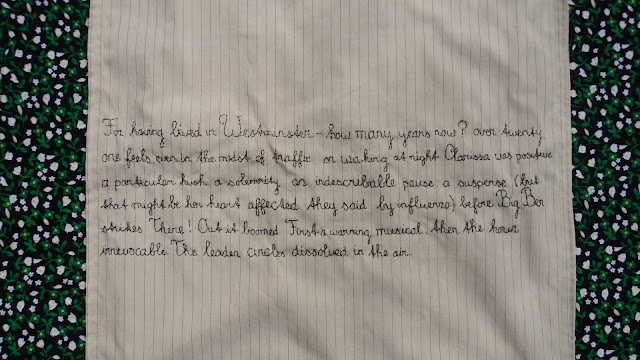 For having lived in Westminster - how many years now? over twenty
one feels even in the midst of traffic or waking at night Clarissa was positive
a particular hush a solemnity an indescribable pause a suspense (but
that might be her heart affected they said by influenza) before Big Ben
strikes There! Out it boomed First a warning musical. then the hour
irrevocable The leaden circles dissolved in the air.